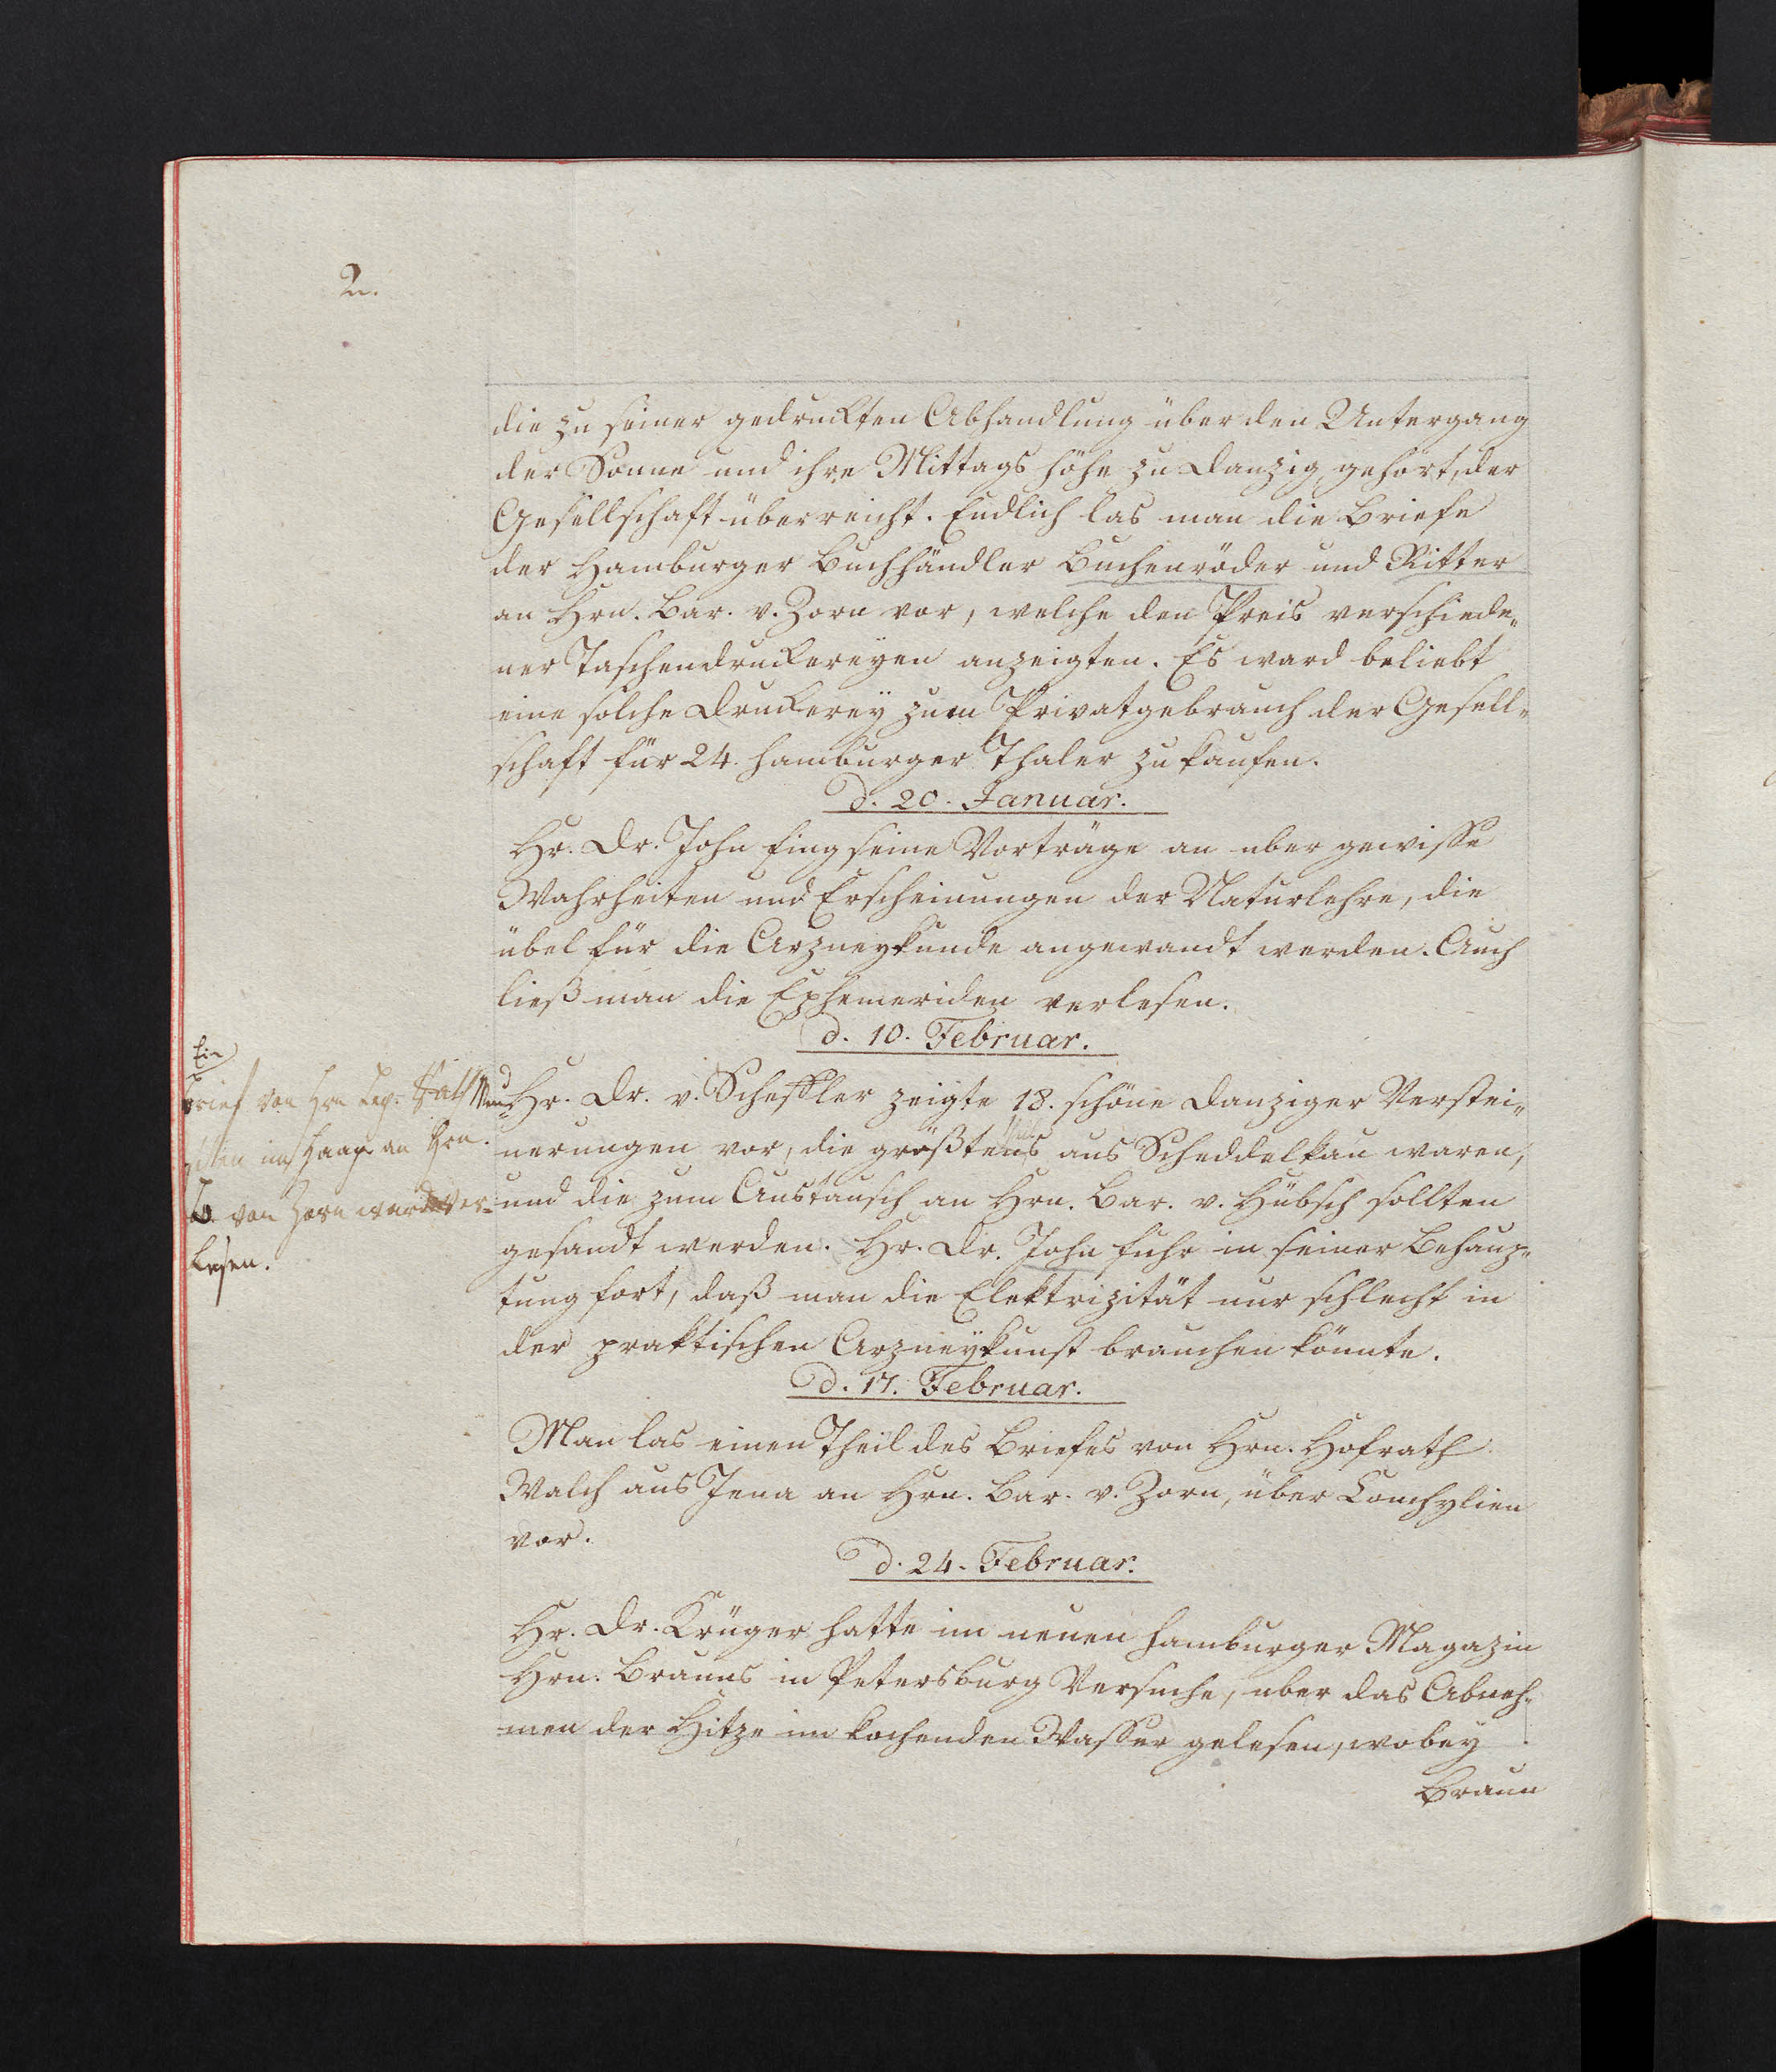 2.
die zu seiner gedruckten Abhandlung über den Untergang
der Sonne und ihre Mittags höhe zu Danzig, gehört, der
Gesellschaft überreicht. Endlich las man die Briefe
der Hamburger Buchhändler Buchenröder und Ritter
an Hrn. Bar. v. Zorn vor, welche den Preis verschiede„
ner Taschendruckereyen anzeigten. Es ward beliebt
eine solche Druckerey zum Privatgebrauch der Gesell„
schaft für 24. hamburger Thaler zu kaufen.
d. 20. Januar.
Hr. Dr. John fing seine Vorträge an uber gewisse
Wahrheiten und Erscheinungen der Naturlehre, die
übel für die Arzneykunde angewandt werden. Auch
ließ man die Ephemeriden verlesen.
d. 10. Februar.
Ein
Brief von Hrn Leg: Rath
im Haag an Hrn.
B. von Zorn wurde ver-
lesen.
Hr. Dr. v. Scheffler zeigte 18. schöne Danziger Verstei„
nerungen vor, die größtens aus Scheddelkau waren,
und die zum Austausch an Hrn. Bar. v. Hübsch sollten
gesandt werden. Hr. Dr. John fuhr in seiner Behaup„
tung fort, daß man die Elektrizität nur schlecht in
der praktischen Arzneykunst brauchen könnte.
d. 17. Februar.
Man las einen Theil des Briefes von Hrn. Hofrath
Walch aus Jena an Hrn. Bar. v. Zorn, über Conchylien
vor.
d. 24. Februar.
Hr. Dr. Krüger hatte im neuen hamburger Magazin
Hrn. Brauns in Petersburg Versuche, uber das Abneh„
men der Hitze im kochenden Wasser gelesen, wobey
Braun